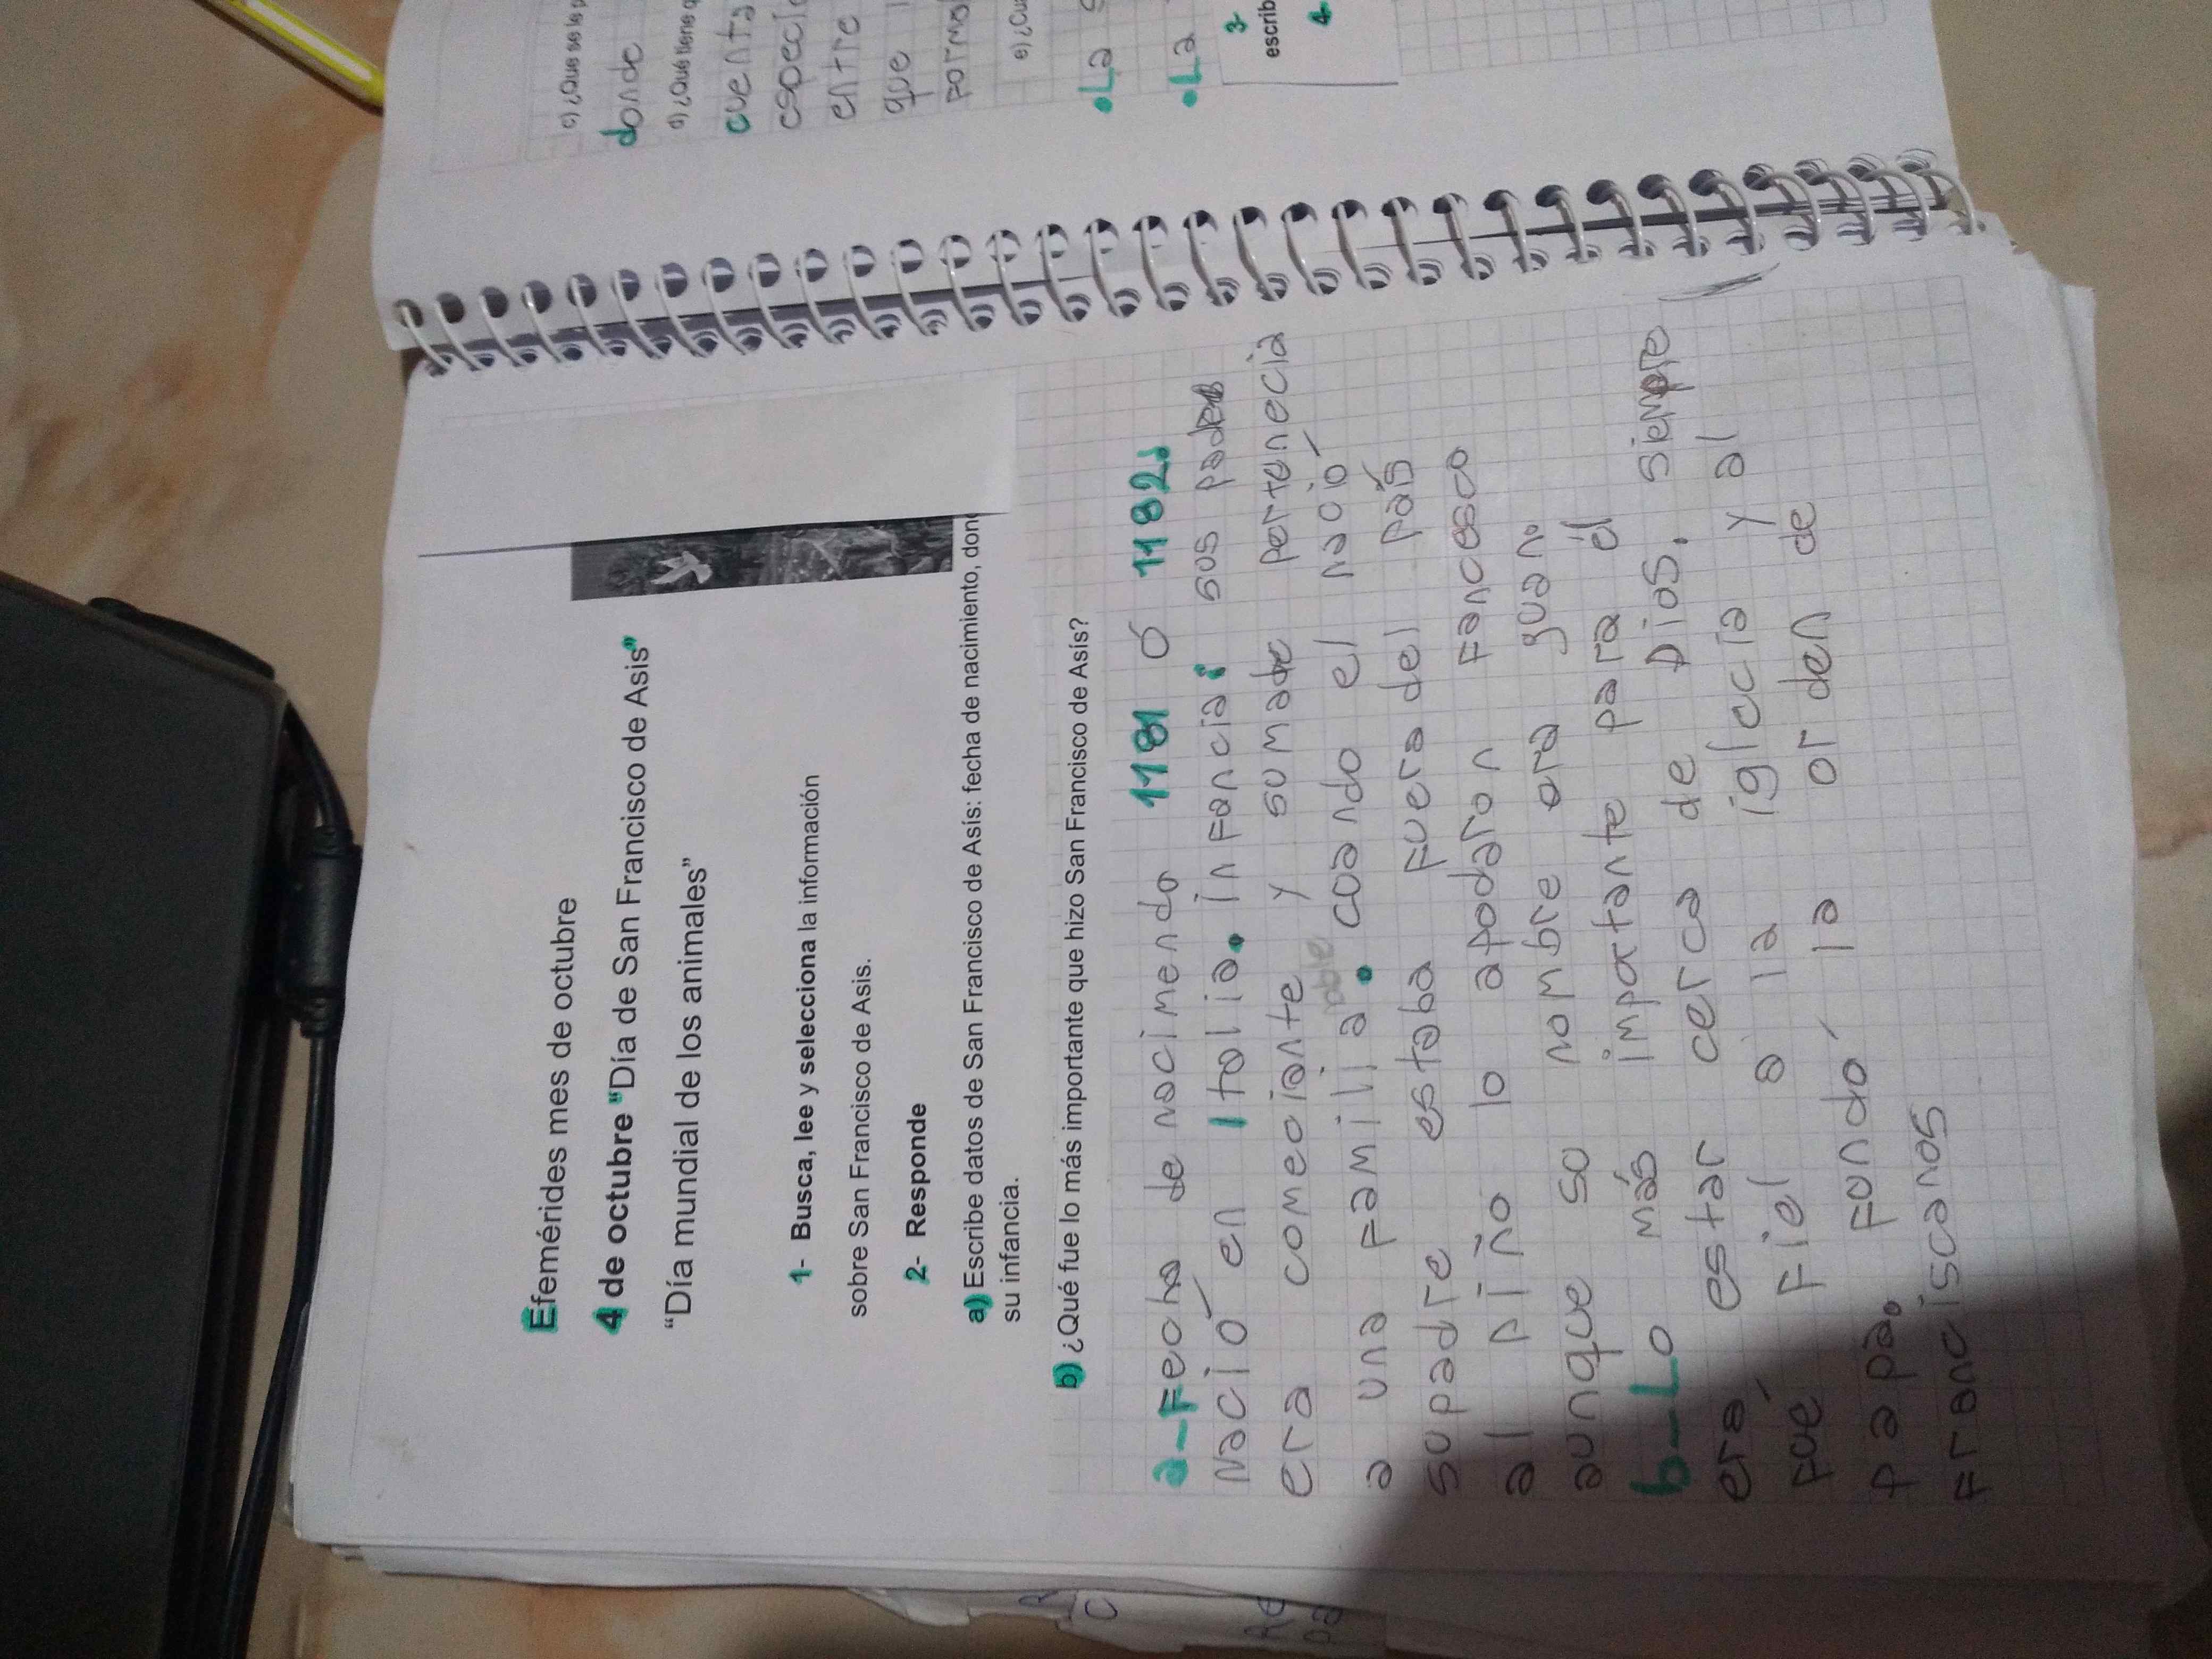 Efemérides mes de octubre
4 de octubre "Día de San Francisco de Asis"
"Día mundial de los animales"
1- Busca, lee y selecciona la información
sobre San Francisco de Asis.
2- Responde
a) Escribe datos de San Francisco de Asís: fecha de nacimiento,
su infancia.
b) ¿Qué fue lo más importante que hizo San Francisco de Asís?
a-Fecha de nacimendo 1181 ó 1182.
Nació en Italia. infancia: sus
era comeciante y pertenecia
a una familia. cuando el nació
su padre estaba Fuera del país
al niño lo apodaron Fancesco
aunque su nombre era
b-Lo más importante para él
era estar cerca de Dios. siempre
Fué Fiel a la iglecia y al
papa. Fundó la orden de
Franciscanos
donde
cuenta
entre
que
•La
•La
3-
escrib
4-